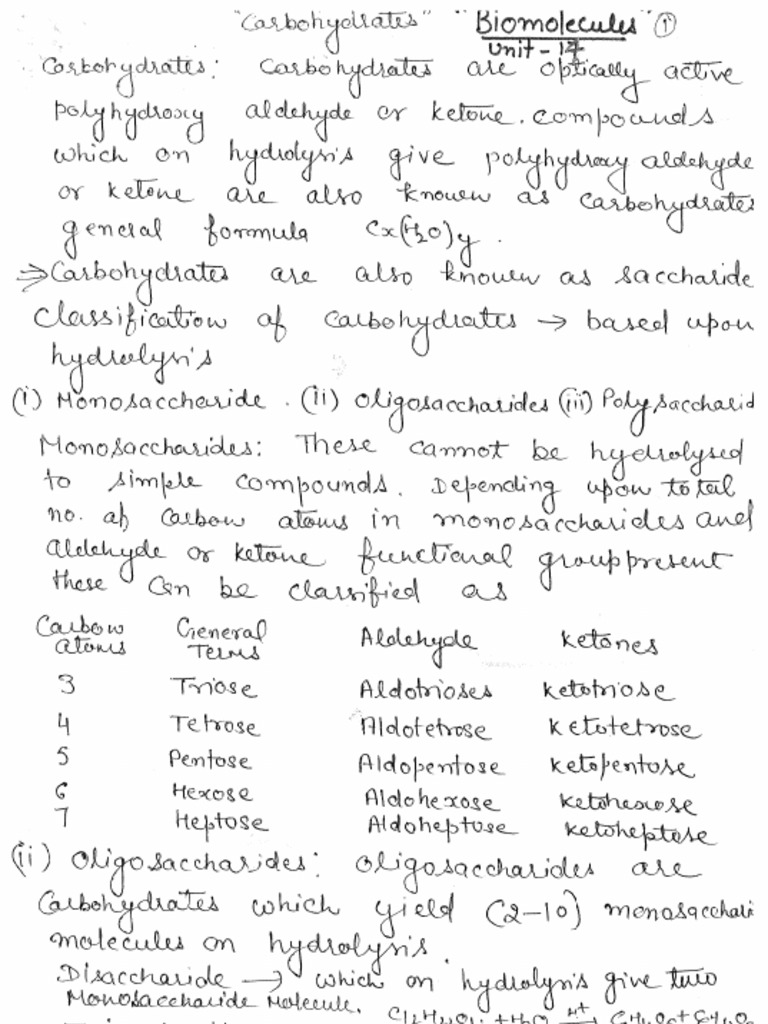 "Carbohydrates" "Biomolecules" ①
Unit - 14
Carbohydrates: Carbohydrates are optically active
polyhydroxy aldehyde or ketone. compounds
which on hydrolysis give polyhydroxy aldehyde
or ketone are also known as carbohydrates
general formula Cx(H2O)y.
⇒ Carbohydrates are also known as saccharide
Classification of carbohydrates → based upon
hydrolysis
(i) Monosaccharide. (ii) Oligosaccharides (iii) Polysaccharid
Monosaccharides: These cannot be hydrolysed
to simple compounds. Depending upon total
no. of Carbon atoms in monosaccharides and
aldehyde or ketone functional group present
these can be classified as
Carbon General Aldehyde ketones
atoms Terms
3 Triose Aldotrioses ketotriose
4 Tetrose Aldotetrose ketotetrose
5 Pentose Aldopentose ketopentose
6 Hexose Aldohexose ketohexose
7 Heptose Aldoheptose ketoheptose
(ii) Oligosaccharides: Oligosaccharides are
Carbohydrates which yield (2-10) monosacchari
molecules on hydrolysis.
Disaccharide → which on hydrolysis give two
Monosaccharide Molecule.